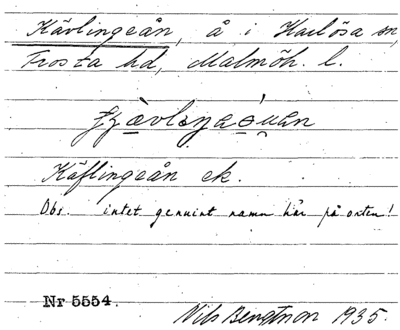 Kävlingeån, å i Harlösa sn,
Frosta hd, Malmöh. l.
Käflingeån ek.
Obs. intet genuint namn här på orten!
Nr 5554.
Nils Bengtson 1935.